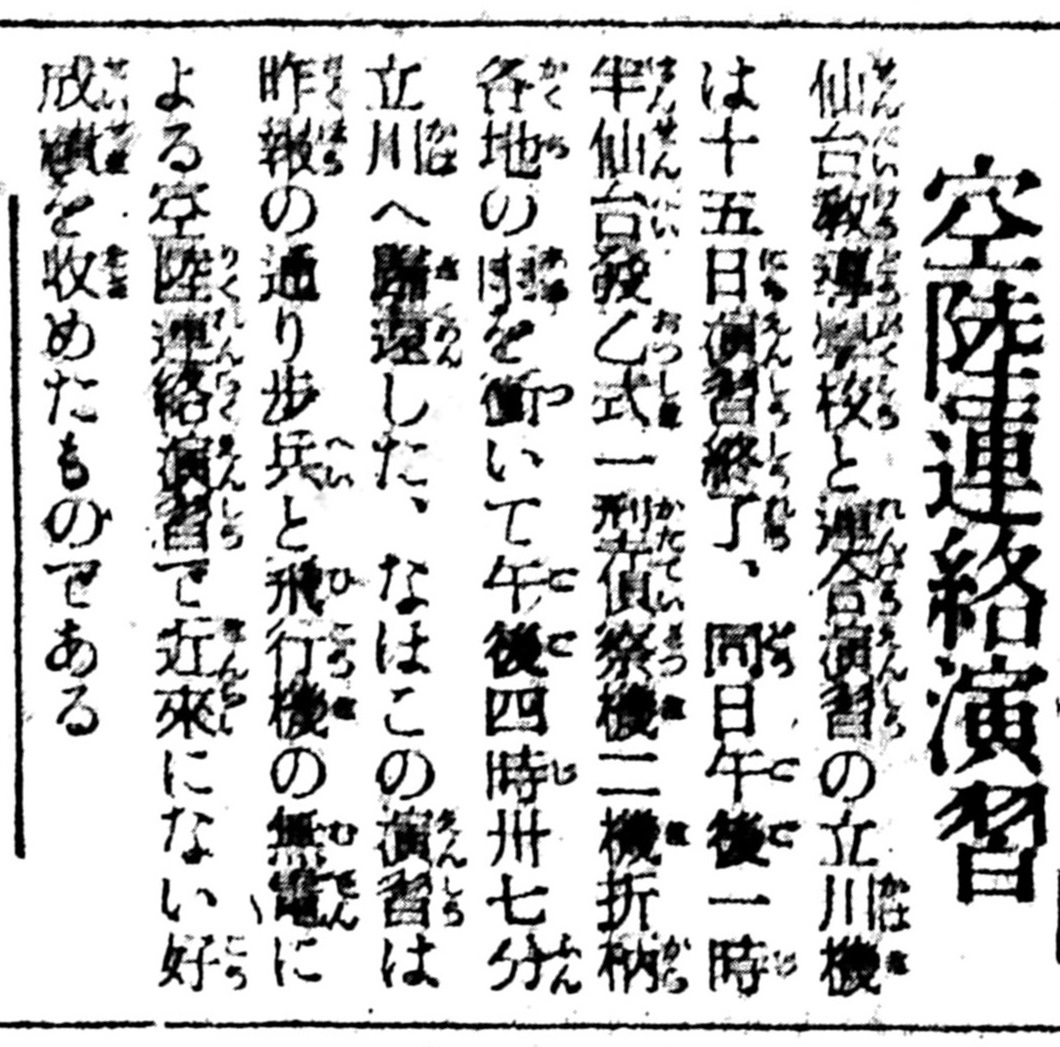 空陸連絡演習
仙台教導學校と連合演習の立川機
は十五日演習終了、同日午後一時
半仙台發乙式一型偵察機二機折柄
各地の雨を衝いて午後四時卅七分
立川へ歸還した、なほこの演習は
昨報の通り步兵と飛行機の無電に
よる空陸連絡演習で近來にない好
成績を收めたものである